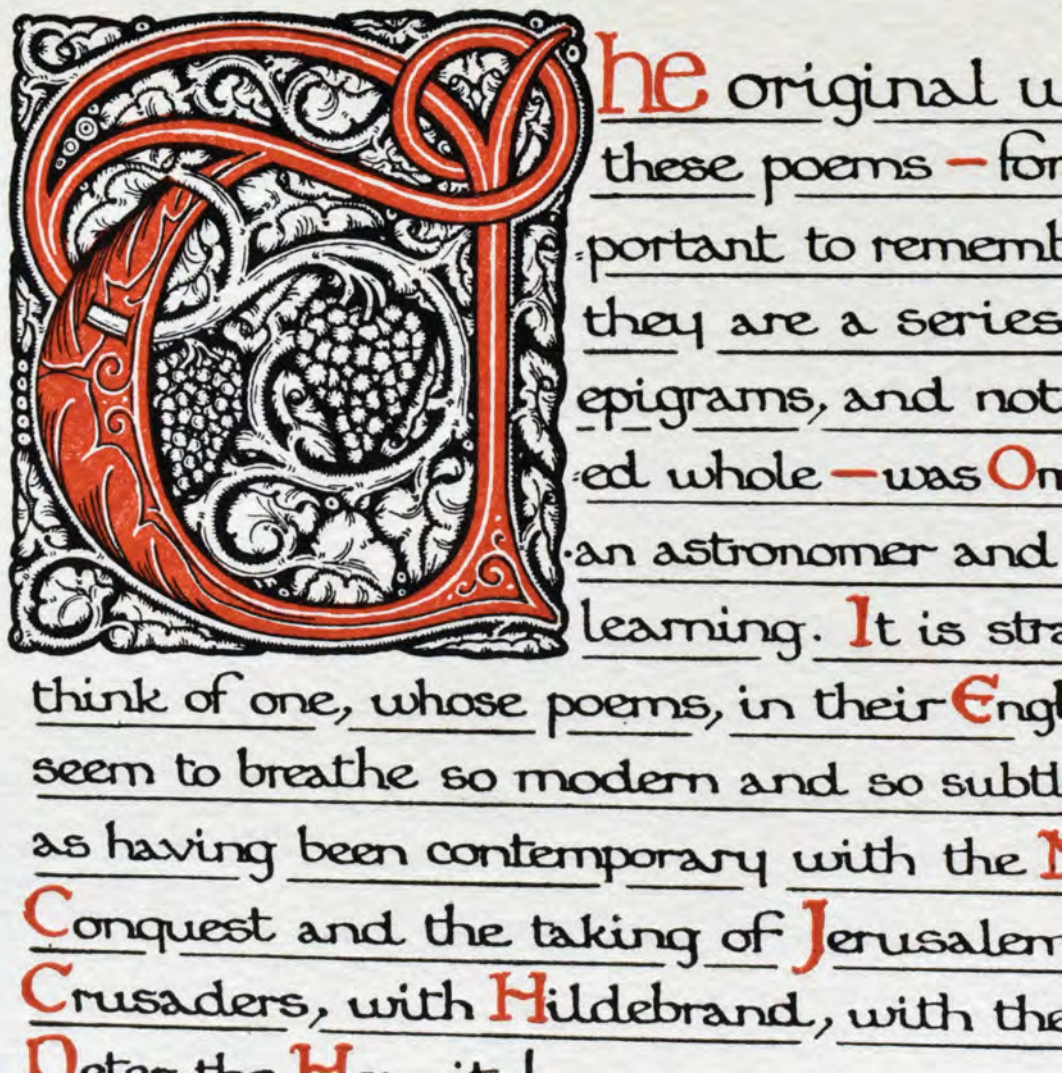 The original
these poems – for
portant to rememb
they are a series
epigrams, and not
ed whole – was Om
an astronomer and
learning. It is stra
think of one, whose poems, in their Engl
seem to breathe so modern and so subtl
as having been contemporary with the N
Conquest and the taking of Jerusalem
Crusaders, with Hildebrand, with the